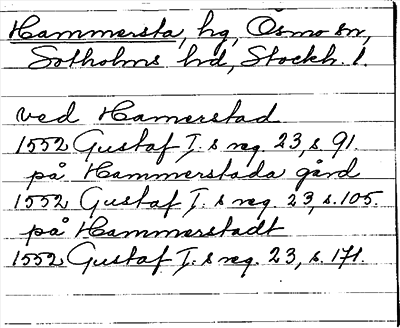 Hammersta, hg, Ösmo sn,
Sotholms hd, Stockh. l.
ved Hamerstad
1552 Gustaf I. s reg. 23, s. 91.
på Hammerstada gård
1552 Gustaf I. s reg. 23, s. 105.
på Hammerstadt
1552 Gustaf I. s reg. 23, s. 171.